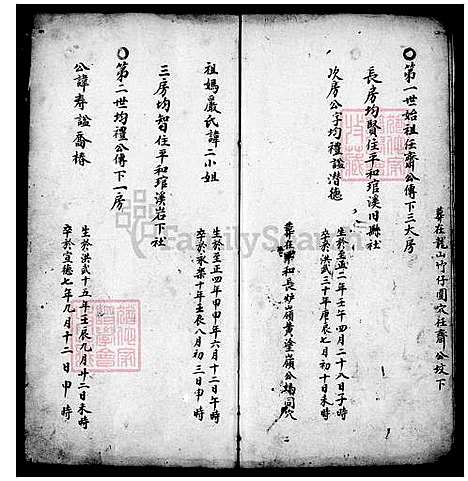 〇第一世始祖任齋公傳下三大房
葬在龍山竹仔圓穴任齋公墳下
長房均賢住平和琯溪旧縣社
次房公字均禮諡潛德
生於至正二年壬午四月二十八日子時
卒於洪武三十年庚辰七月初十日未時
葬在平和長炉嶺黄塗嶺公媽同穴
祖媽嚴氏諱二小姐
生於至正四年甲申年六月十二日午時
卒於永樂十年壬辰八月初三日申時
三房均智住平和琯溪岩下社
〇第二世均禮公傳下一房
公諱寿諡喬椿
生於洪武十五年壬辰九月廿二日未時
卒於宣德七年九月十二日申時
FamilySearch